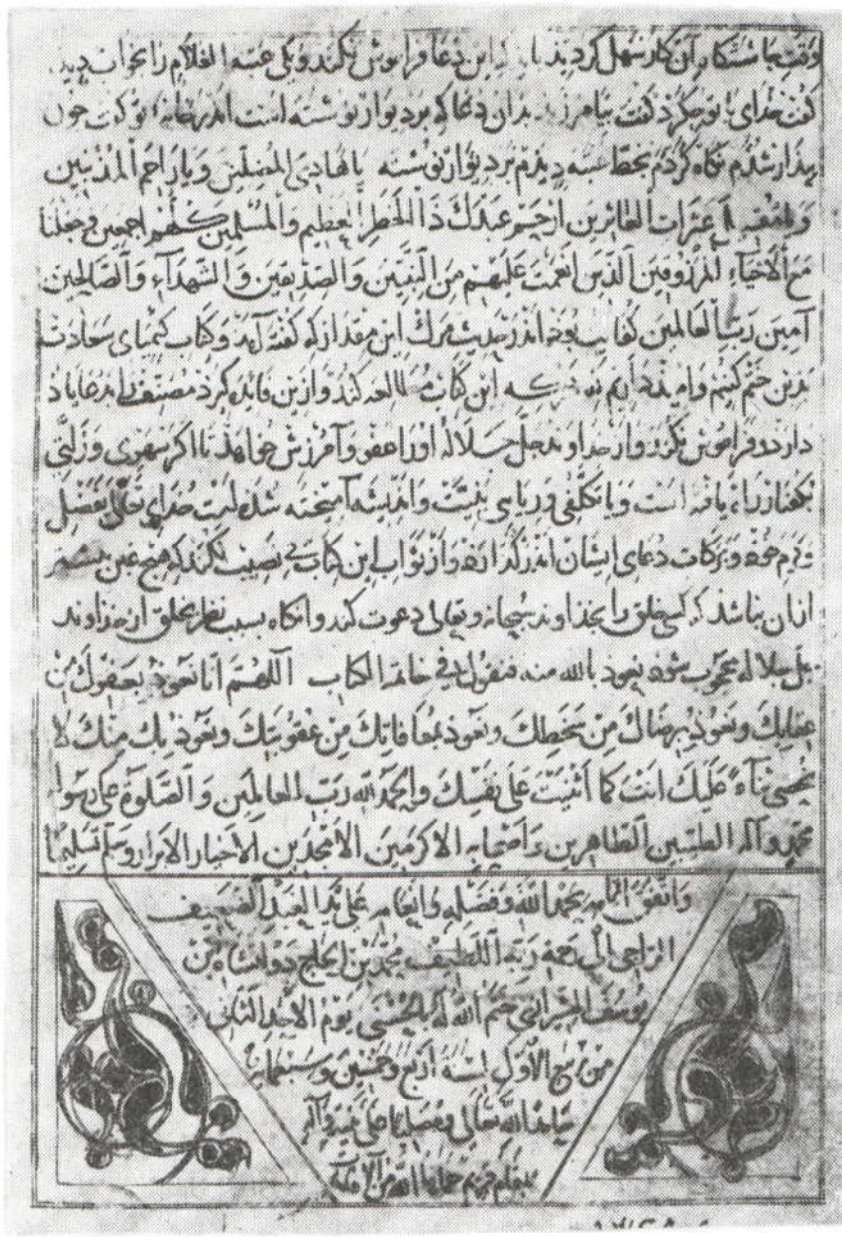 وقت جاشتگاه آن کار سهل کردید این دعا فراموش نکردند و یکی عتبه الغلام را بخواب دید
گفت خدای با تو چه کرد گفت بیامرزید بدان دعا که بر دیوار نوشته است اندر خانه تو گفت چون
بیدار شدم نگاه کردم بخط عتبه دیدم بر دیوار نوشته یا هادی المضلین ویا راحم المذنبین
عثرات العاثرین ارحم عبدك ذا الخطر العظیم والمسلمین کلهم اجمعین وجعلنا
مع الاحیاء المرزوقین الذین انعمت علیهم من النبیین والصدیقین والشهدآء والصالحین
آمین رب العالمین کفایت بود اندر حدیث مرگ این مقدار که گفته آمد و کتاب کیمیای سعادت
بدین ختم کنیم وامید داریم که این کتاب مطالعه کند وازین فایده گیرد مصنف را بدعا یاد
دارد و فراموش نکند واز خداوند جل جلاله او را عفو و آمرزش خواهد تا اگر سهوی وزلتی
بگفتار راه یافته است ویا تکلفی وریایی بنیت واندیشه آمیخته شده است خدای تعالی بفضل
وکرم خود وبرکات دعای ایشان اندر گذارد واز ثواب این کتاب بی نصیب نکند که هیچ غبن بیشتر
ازان نباشد که کسی خلق را بخداوند سبحانه وتعالی دعوت کند وآنگاه بسبب نظر بخلق از خداوند
جل جلاله محجوب شود نعوذ بالله منه فنقول فی خاتمة الکتاب اللهم انا نعوذ بعفوك من
عقابك ونعوذ برضاك من سخطك ونعوذ بمعافاتك من عقوبتك ونعوذ بك منك لا
نحصی ثناءً علیك انت کما اثنیت علی نفسك والحمد لله رب العالمین والصلوة علی رسوله
محمد وآله الطیبین الطاهرین واصحابه الاکرمین الامجدین الاخیار الابرار وسلم تسلیما
واتفق اتمامه بحمد الله وفضله وانعامه علی ید العبد الضعیف
الراجی الی رحمة ربه اللطیف محمد بن الحاج دولتشاه بن
یوسف الشیرازی ختم الله له بالحسنی یوم الاحد الثانی
من ربیع الاول لسنة اربع وخمسین وسبعمایة
حامدا لله تعالی ومصلیا علی نبیه وآله